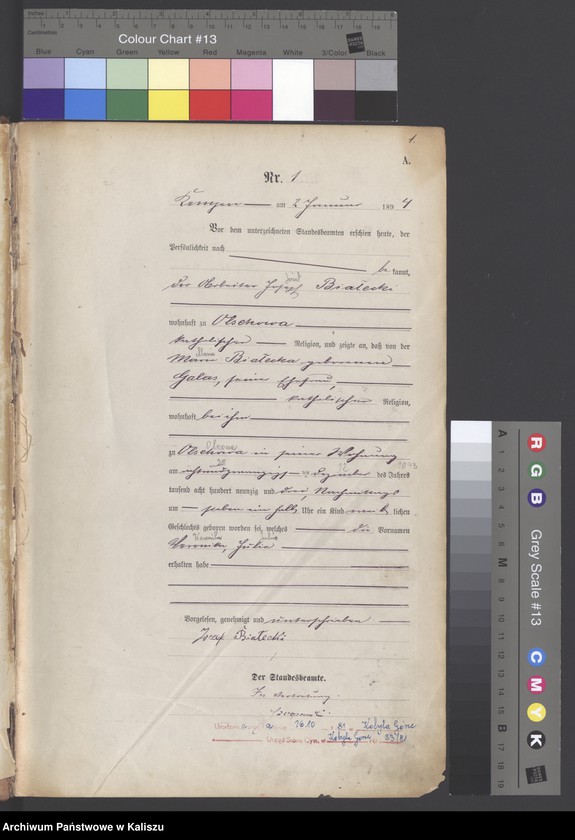 Inches
Centimetres
Colour Chart #13
Blue Cyan Green Yellow Red Magenta White 3/Color Black
1.
A.
Nr. 1
Kempen am 2 Januar 1894
Vor dem unterzeichneten Standesbeamten erschien heute, der
Persönlichkeit nach
be kannt,
der Arbeiter Joseph Białecki
wohnhaft zu Olschowa
katholischer Religion, und zeigte an, daß von der
Marie Białecka geborenen
Galas, seiner Ehefrau,
katholischer Religion,
wohnhaft bei ihm
zu Olschowa in seiner Wohnung
am achtundzwanzigsten Dezember des Jahres 1893
tausend acht hundert neunzig und drei, Nachmittags
um sieben ein halb Uhr ein Kind weib lichen
Geschlechts geboren worden sei, welches die Vornamen
Veronika, Julia
erhalten habe
Vorgelesen, genehmigt und unterschrieben
Józef Białecki
Der Standesbeamte.
In Vertretung.
26.10 81 Kobyla Góra
Kobyla Góra 83/81
R G B
Grey Scale #13
C M Y K
A 1 2 3 4 5 6 M 8 9 10 11 12 13 14 15 B 17 18 19
Archiwum Państwowe w Kaliszu